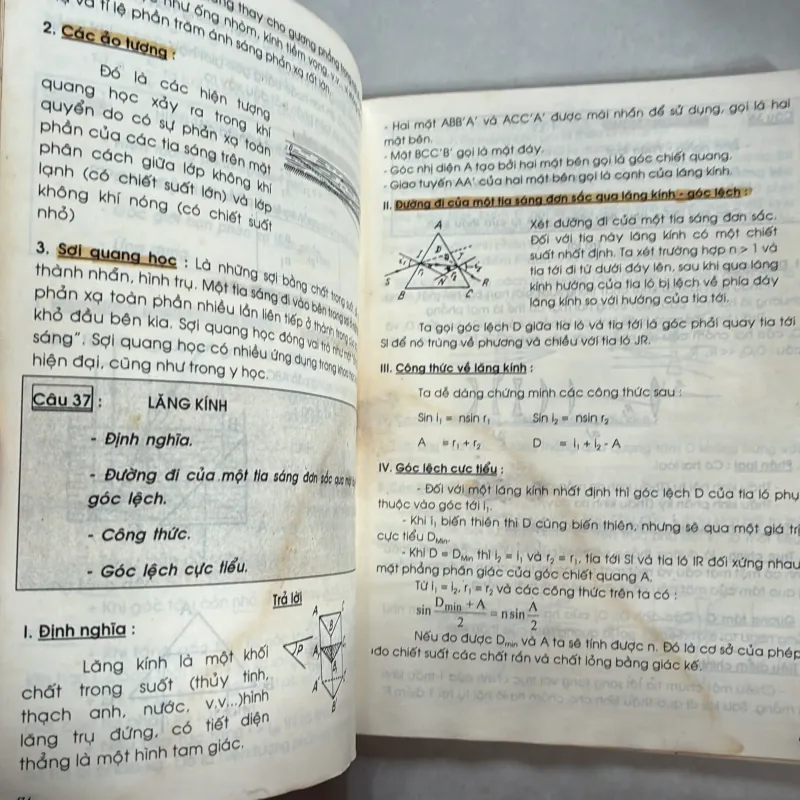 thay cho gương phẳng trong
như ống nhòm, kính tiềm vọng, v.v...
và tỉ lệ phần trăm ánh sáng phản xạ rất lớn.
2. Các ảo tượng :
Đó là các hiện tượng
quang học xảy ra trong khí
quyển do có sự phản xạ toàn
phần của các tia sáng trên mặt
phân cách giữa lớp không khí
lạnh (có chiết suất lớn) và lớp
không khí nóng (có chiết suất
nhỏ)
3. Sợi quang học : Là những sợi bằng chất trong suốt,
thành nhẵn, hình trụ. Một tia sáng đi vào bên trong
phản xạ toàn phần nhiều lần liên tiếp ở thành trong
khỏ đầu bên kia. Sợi quang học đóng vai trò như một
sáng". Sợi quang học có nhiều ứng dụng trong khoa học
hiện đại, cũng như trong y học.
Câu 37 : LĂNG KÍNH
- Định nghĩa.
- Đường đi của một tia sáng đơn sắc qua
góc lệch.
- Công thức.
- Góc lệch cực tiểu.
Trả lời
I. Định nghĩa :
Lăng kính là một khối
chất trong suốt (thủy tinh,
thạch anh, nước, v.v...)hình
lăng trụ đứng, có tiết diện
thẳng là một hình tam giác.
A
B
C
A
P
A'
B'
C'
- Hai mặt ABB'A' và ACC'A' được mài nhẵn để sử dụng, gọi là hai
mặt bên.
- Mặt BCC'B' gọi là mặt đáy.
- Góc nhị diện A tạo bởi hai mặt bên gọi là góc chiết quang.
- Giao tuyến AA' của hai mặt bên gọi là cạnh của lăng kính.
II. Đường đi của một tia sáng đơn sắc qua lăng kính - góc lệch :
Xét đường đi của một tia sáng đơn sắc.
Đối với tia này lăng kính có một chiết
suất nhất định. Ta xét trường hợp n > 1 và
tia tới đi từ dưới đáy lên, sau khi qua lăng
kính hướng của tia ló bị lệch về phía đáy
lăng kính so với hướng của tia tới.
A
D
S
B
N
C
R
Ta gọi góc lệch D giữa tia ló và tia tới là góc phải quay tia tới
SI để nó trùng về phương và chiều với tia ló JR.
III. Công thức về lăng kính :
Ta dễ dàng chứng minh các công thức sau :
Sin i₁ = nsin r₁ Sin i₂ = nsin r₂
A = r₁ + r₂ D = i₁ + i₂ - A
IV. Góc lệch cực tiểu :
- Đối với một lăng kính nhất định thì góc lệch D của tia ló phụ
thuộc vào góc tới i₁.
- Khi i₁ biến thiên thì D cũng biến thiên, nhưng sẽ qua một giá trị
cực tiểu Dₘᵢₙ.
- Khi D = Dₘᵢₙ thì i₂ = i₁ và r₂ = r₁, tia tới SI và tia ló IR đối xứng nhau
mặt phẳng phân giác của góc chiết quang A.
Từ i₁ = i₂, r₁ = r₂ và các công thức trên ta có :
sin (Dmin + A)/2 = n sin A/2
Nếu đo được Dₘᵢₙ và A ta sẽ tính được n. Đó là cơ sở của phép
đo chiết suất các chất rắn và chất lỏng bằng giác kế.